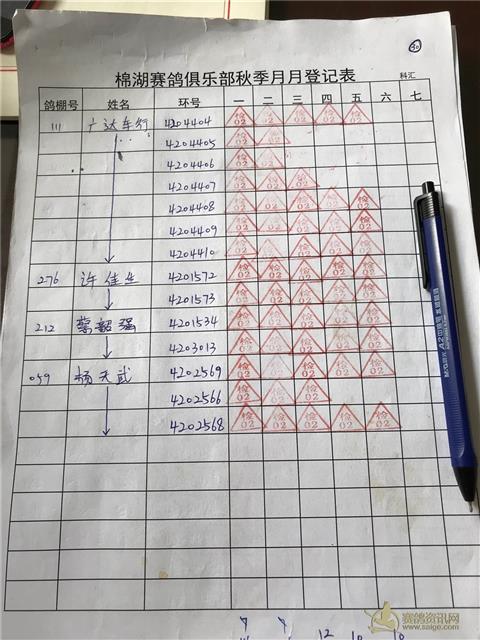 30
棉湖赛鸽俱乐部秋季月月登记表
科汇
鸽棚号 姓名 环号 一 二 三 四 五 六 七
111 广达车行 4204404 检02 检02 检02 检02 检02
4204405 检02 检02
4204406 检02 检02
4204407 检02 检02 检02
4204408 检02 检02 检02 检02 检02
4204409 检02 检02 检02 检02 检02
4204410 检02 检02 检02 检02 检02
276 许佳生 4201572 检02 检02 检02 检02 检02
4201573 检02 检02 检02 检02 检02
212 蔡韶强 4201534 检02 检02 检02 检02 检02
4203013 检02 检02 检02 检02 检02
059 杨天武 4202569 检02 检02 检02 检02 检02
4202566 检02 检02 检02
4202568 检02 检02 检02 检02 检02
M&G晨光 A2中性笔
赛鸽资讯网
www.saige.com
12 10